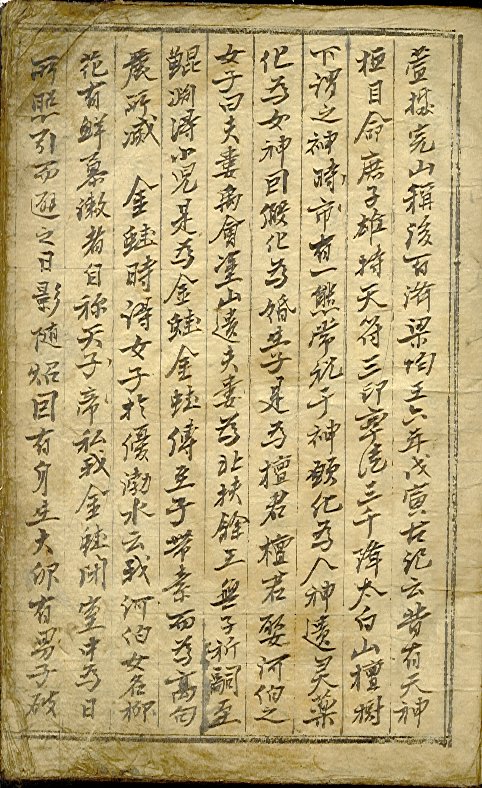 萱據完山稱後百濟梁均王六年戊寅古記云昔有天神
桓囙命庶子雄持天符三印率徒三千降太白山檀樹
下謂之神時市有一熊常祝于神願化為人神遺灵藥
化為女神囙假化為婚生子是為檀君檀君娶河伯之
女子曰夫婁禹會塗山遣夫婁為北扶餘王無子祈嗣至
鯤渕得小児是為金蛙金蛙傳至子帶素而為高句
麗所滅 金蛙時得女子於優渤水云我河伯女名柳
花有鮮慕漱者自称天子帝私我金蛙閉室中為日
所照引而避之日影随炤囙有身生大卵有男子破